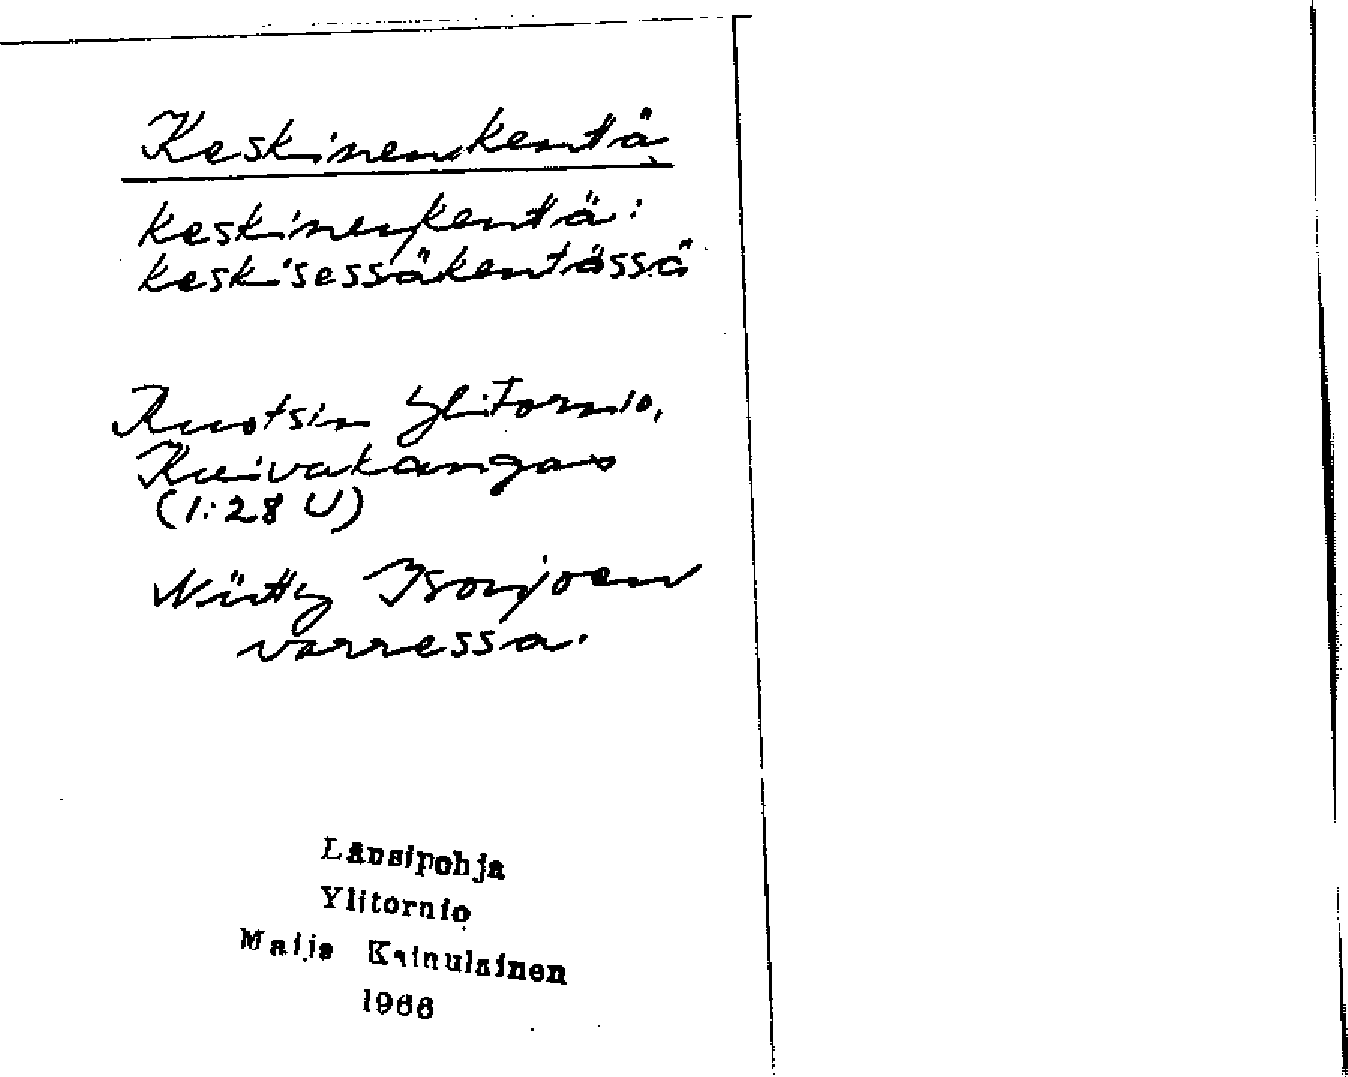 Keskinenkentä
keskinenkentä:
keskisessäkentässä
Ruotsin Ylitornio,
Kuivakangas
(1:28 U)
Niitty Isonjoen
varressa.
Länsipohja
Ylitornio
Maija Kainulainen
1966